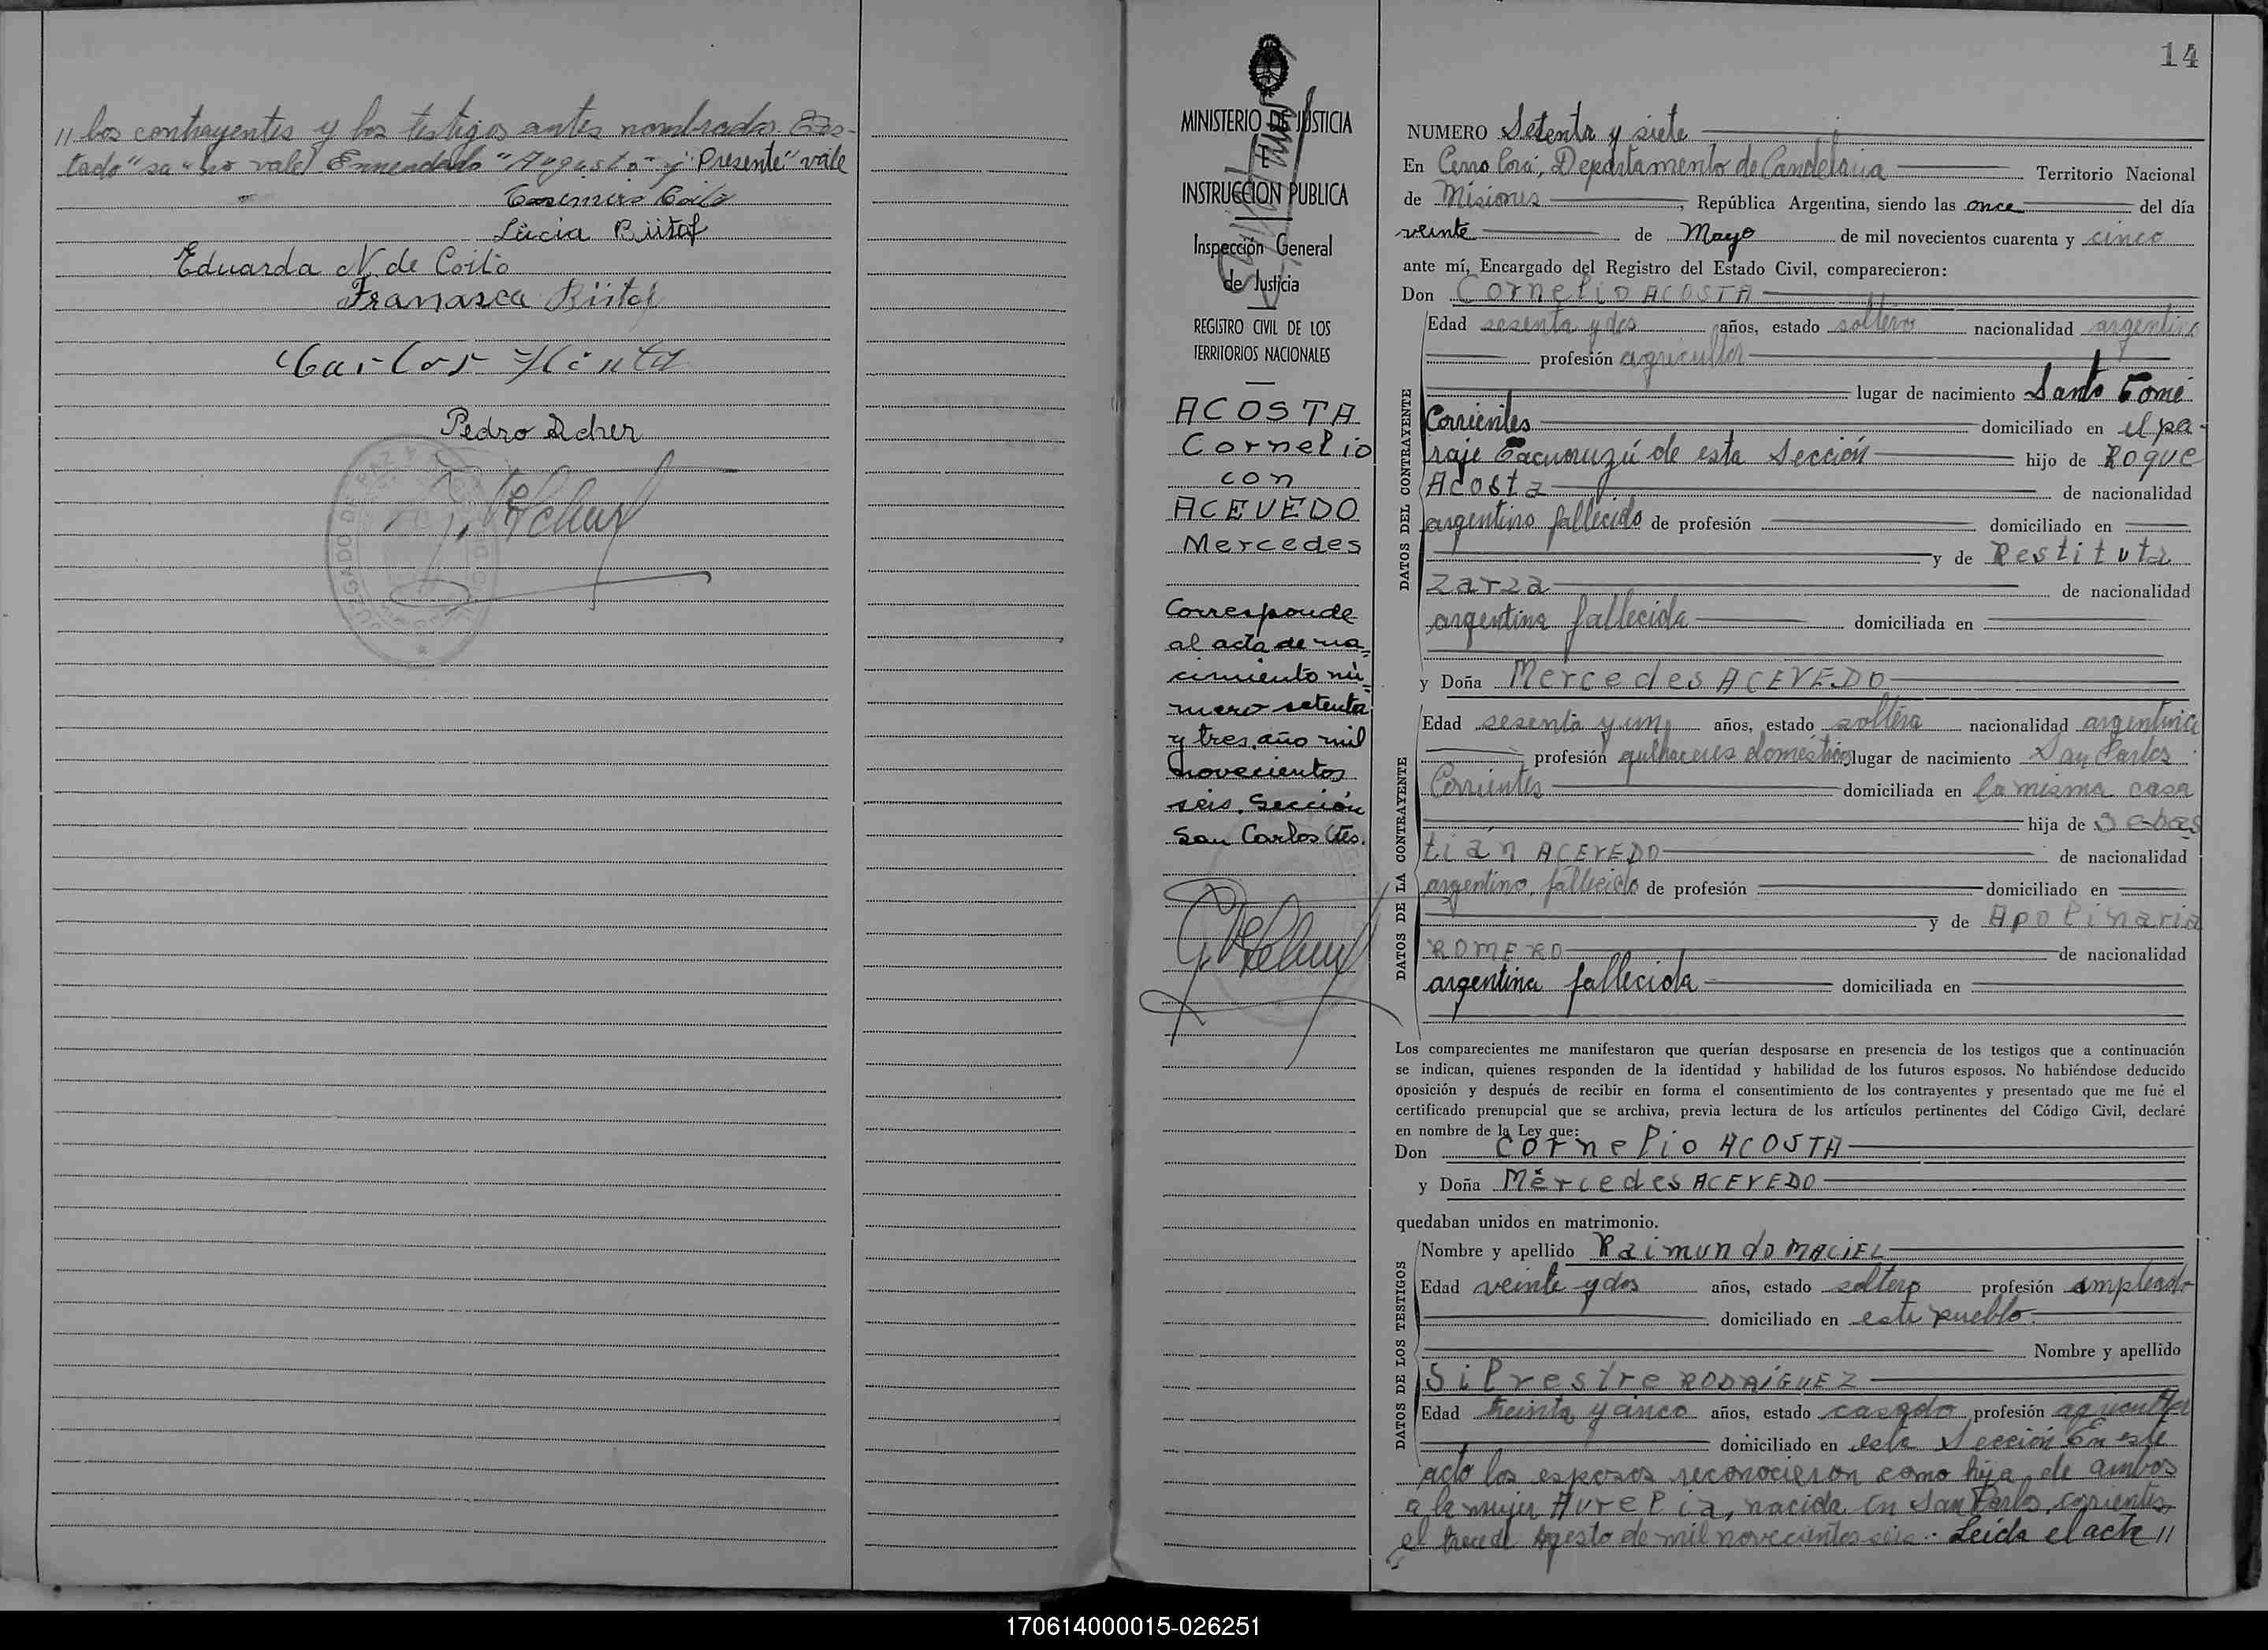 // los contrayentes y los testigos antes nombrados. Es-
tado" sa "no vale) Enmendado "Augusto" y "Presente" vale
Casimiro Coito
Lucia
Eduarda N. de Coito
Carlos
Pedro Scher
JUZGADO DE PAZ
14
MINISTERIO DE JUSTICIA
E
INSTRUCCION PUBLICA
Inspección General
de Justicia
REGISTRO CIVIL DE LOS
TERRITORIOS NACIONALES
ACOSTA
Cornelio
con
ACEVEDO
Mercedes
Corresponde
al acta de na=
cimiento nú=
mero setenta
y tres, año mil
novecientos
seis. Sección
San Carlos Ctes.
NUMERO Setenta y siete
En Cerro Corá, Departamento de Candelaria Territorio Nacional
de Misiones, República Argentina, siendo las once del día
veinte de Mayo de mil novecientos cuarenta y cinco
ante mí, Encargado del Registro del Estado Civil, comparecieron:
Don Cornelio ACOSTA
DATOS DEL CONTRAYENTE
Edad sesenta y dos años, estado soltero nacionalidad argentino
profesión agricultor
lugar de nacimiento Santo Tomé
Corrientes domiciliado en el pa-
raje Tacuaruzú de esta Sección hijo de Roque
Acosta de nacionalidad
argentino fallecido de profesión domiciliado en
y de Restituta
Zarza de nacionalidad
argentina fallecida domiciliada en
y Doña Mercedes ACEVEDO
DATOS DE LA CONTRAYENTE
Edad sesenta y un años, estado soltera nacionalidad argentina
profesión quehaceres domésticos lugar de nacimiento San Carlos
Corrientes domiciliada en la misma casa
hija de Sebas
tián ACEVEDO de nacionalidad
argentino, fallecido de profesión domiciliado en
y de Apolinaria
ROMERO de nacionalidad
argentina fallecida domiciliada en
Los comparecientes me manifestaron que querían desposarse en presencia de los testigos que a continuación
se indican, quienes responden de la identidad y habilidad de los futuros esposos. No habiéndose deducido
oposición y después de recibir en forma el consentimiento de los contrayentes y presentado que me fué el
certificado prenupcial que se archiva, previa lectura de los artículos pertinentes del Código Civil, declaré
en nombre de la Ley que:
Don Cornelio ACOSTA
y Doña Mercedes ACEVEDO
quedaban unidos en matrimonio.
DATOS DE LOS TESTIGOS
Nombre y apellido Raimundo MACIEL
Edad veinte y dos años, estado soltero profesión empleado
domiciliado en este pueblo.
Nombre y apellido
Silvestre RODRÍGUEZ
Edad treinta y cinco años, estado casado profesión agricultor
domiciliado en esta Sección En este
acto los esposos reconocieron como hija de ambos
a la mujer Aurelia, nacida en San Carlos, corrientes,
el trece de Agosto de mil novecientos seis.- Leida el acta //
170614000015-026251